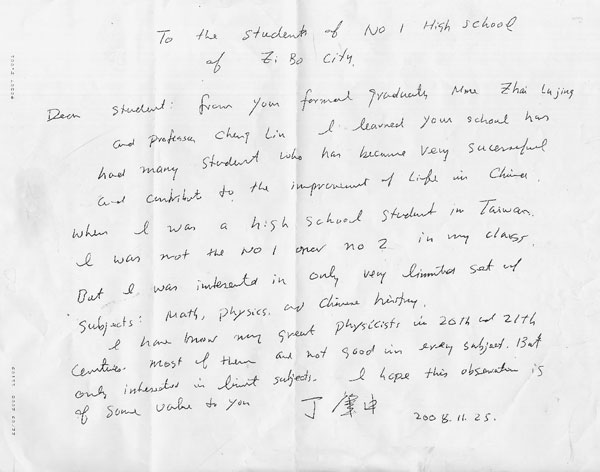 To the students of No 1 High school
of Zi Bo City.
Dear student: from your formal graduates Mme Zhai Lujing
and professor Cheng Lin I learned your school has
had many student who has became very successful
and contribut to the improvement of Life in China.
when I was a high school student in Taiwan.
I was not the No 1 or no 2 in my class.
But I was interested in only very limited set of
Subjects: Math, physics and Chinese history.
I have know many great physicists in 20th and 21th
Centuries most of them are not good in every subject. But
only interested in limit subjects. I hope this observation is
of some value to you
丁肇中 2008.11.25.